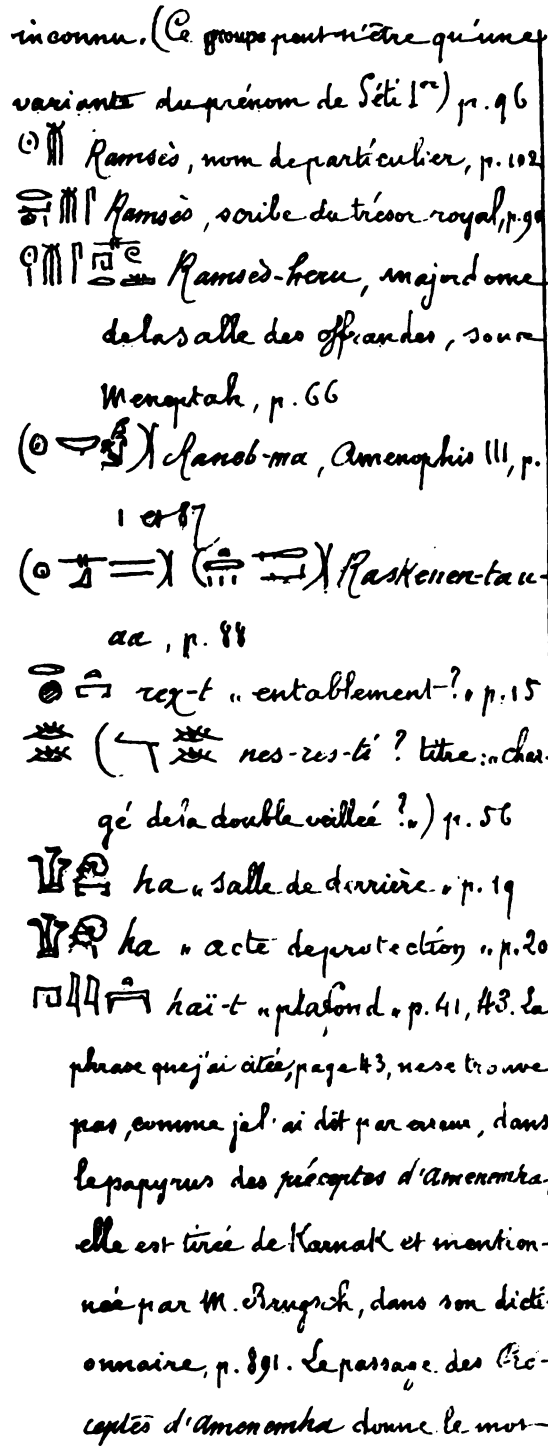 inconnu. (Ce groupe peut n'être qu'une
variante du prénom de Séti Ier) p. 96
Ramsès, nom de particulier, p. 102
Ramsès, scribe du trésor royal, p. 90
Ramsès-heru, majordome
de la salle des offrandes, sous
Meneptah, p. 66
Raneb-ma, Amenophis III, p.
1 et 87
Raskenen-tau-
aa, p. 88
rex-t „ entablement ? „ p. 15
nes-res-ti ? titre : „ char-
gé de la double veillée ? „) p. 56
ha „ salle de derrière „ p. 19
ha „ acte de protection „ p. 20
haï-t „ plafond „ p. 41, 43. La
phrase que j'ai citée, page 43, ne se trouve
pas, comme je l'ai dit par erreur, dans
le papyrus des préceptes d'Amenemha,
elle est tirée de Karnak et mention-
née par M. Brugsch, dans son dicti-
onnaire, p. 891. Le passage des Pré-
ceptes d'Amenemha donne le mot